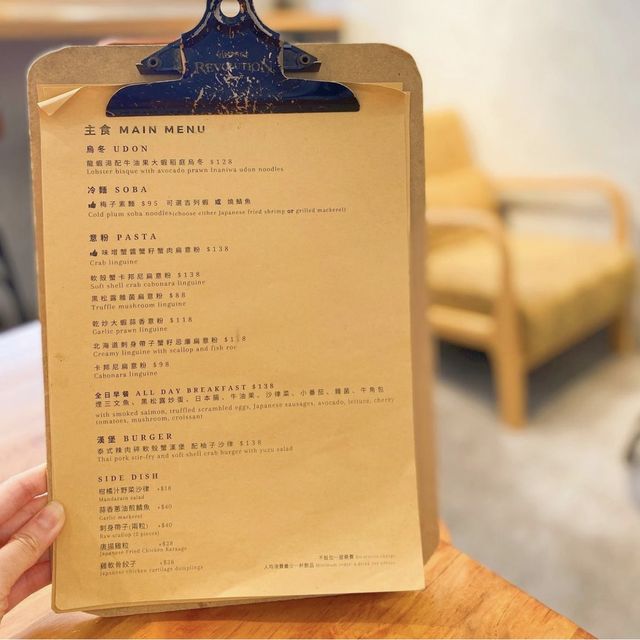 REVOLUTION
主食 MAIN MENU
烏冬 UDON
龍蝦湯配牛油果大蝦稻庭烏冬 $128
Lobster bisque with avocado prawn Inaniwa udon noodles
冷麵 SOBA
梅子素麵 $95 可選吉列蝦 或 燒鯖魚
Cold plum soba noodles(choose either Japanese fried shrimp or grilled mackerel)
意粉 PASTA
味增蟹醬蟹籽蟹肉扁意粉 $138
Crab linguine
軟殼蟹卡邦尼扁意粉 $138
Soft shell crab cabonara linguine
黑松露雜菌扁意粉 $88
Truffle mushroom linguine
乾炒大蝦蒜香意粉 $118
Garlic prawn linguine
北海道刺身帶子蟹籽忌廉扁意粉
Creamy linguine with scallop and fish roe
卡邦尼扁意粉 $98
Cabonara linguine
全日早餐 ALL DAY BREAKFAST $138
煙三文魚、黑松露炒蛋、日本腸、牛油果、沙律菜、小番茄、雜菌、牛角包
with smoked salmon, truffled scrambled eggs, Japanese sausages, avocado, lettuce, cherry
tomatoes, mushroom, croissant
漢堡 BURGER
泰式辣肉碎軟殼蟹漢堡 配柚子沙律 $138
Thai pork stir-fry and soft shell crab burger with yuzu salad
SIDE DISH
柑橘汁野菜沙律 +$38
Mandarain salad
蒜香蔥油煎鯖魚 +$40
Garlic mackerel
刺身帶子(兩粒) +$40
Raw scallop (2 pieces)
唐揚雞粒 +$28
Japanese Fried Chicken Karaage
雞軟骨餃子 +$28
Japanese chicken cartilage dumplings
不設加一服務費 No service charge
人均消費最少一杯飲品 Minimum order a drink per person